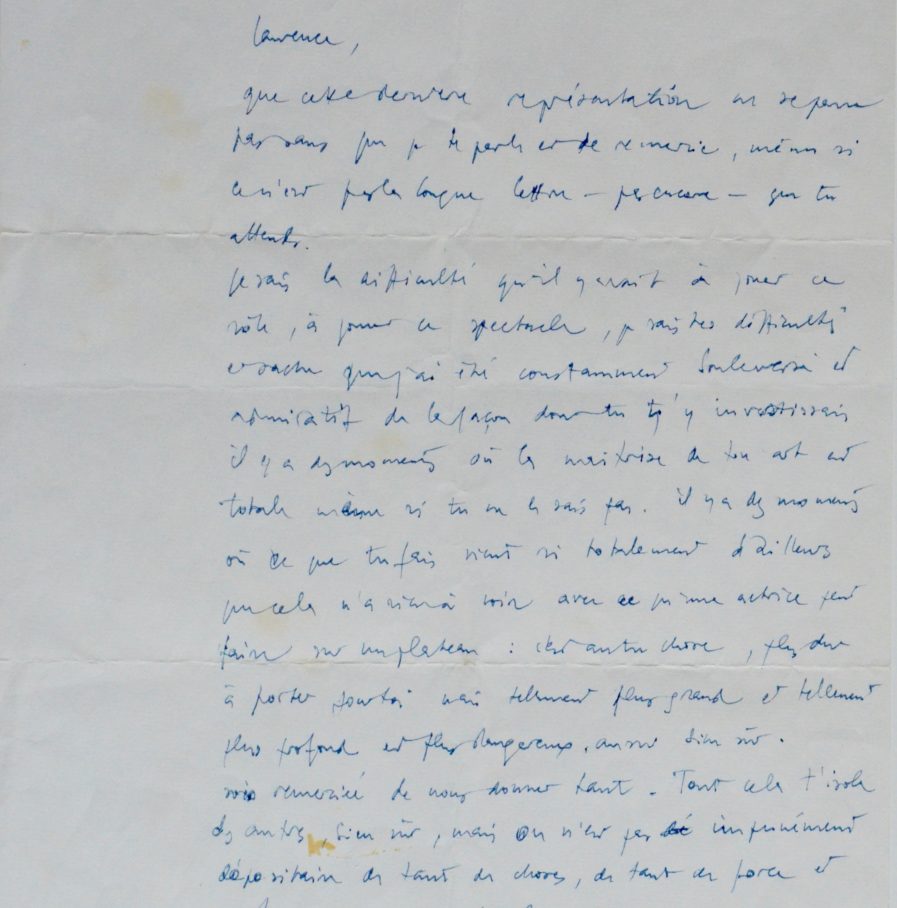 Laurence,
que cette dernière représentation ne se passe
pas sans que je te parle et te remercie, même si
ce n'est pas la longue lettre – pas encore – que tu
attends.
je sais la difficulté qu'il y avait à jouer ce
rôle, à jouer ce spectacle, je sais tes difficultés
et sache que j'ai été constamment bouleversé et
admiratif de la façon dont tu t'y investissais
il y a des moments où la maitrise de ton art est
totale même si tu ne le sais pas. il y a des moments
où ce que tu fais vient si totalement d'ailleurs
que cela n'a rien à voir avec ce qu'une actrice peut
faire sur un plateau : c'est autre chose, plus dur
à porter pour toi mais tellement plus grand et tellement
plus profond et plus dangereux, aussi bien sûr.
sois remercié de nous donner tant. Tout cela t'isole
des autres, bien sûr, mais on n'est pas impunément
dépositaire de tant de choses, de tant de force et